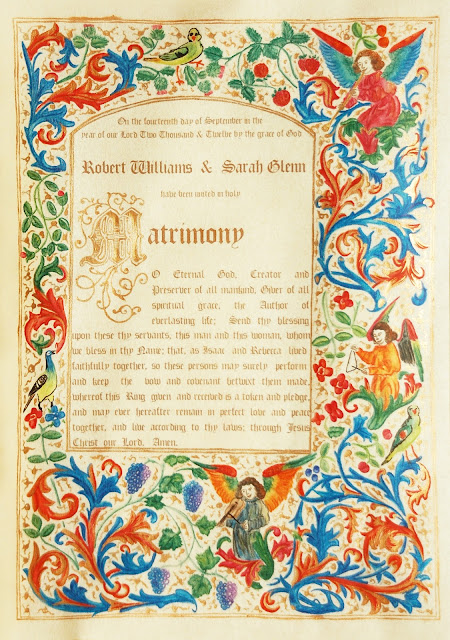 On the fourteenth day of September in the
year of our Lord Two Thousand & Twelve by the grace of God
Robert Williams & Sarah Glenn
have been united in holy
Matrimony
O Eternal God, Creator and
Preserver of all mankind, Giver of all
spiritual grace, the Author of
everlasting life; Send thy blessing
upon these thy servants, this man and this woman, whom
we bless in thy Name; that, as Isaac and Rebecca lived
faithfully together, so these persons may surely perform
and keep the vow and covenant betwixt them made,
whereof this Ring given and received is a token and pledge,
and may ever hereafter remain in perfect love and peace
together, and live according to thy laws; through Jesus
Christ our Lord. Amen.